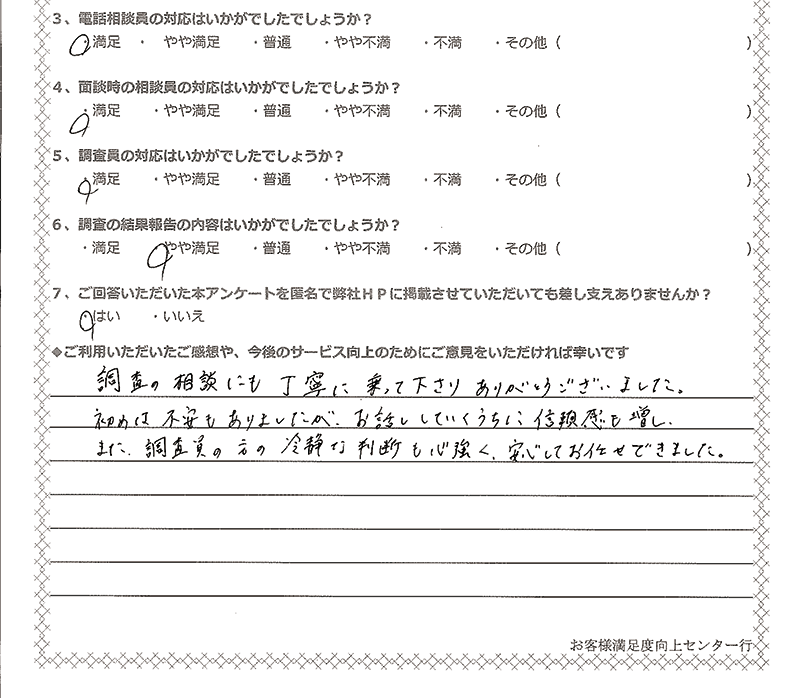 3、電話相談員の対応はいかがでしたでしょうか？
・満足 ・ やや満足 ・普通 ・やや不満 ・不満 ・その他（ ）
4、面談時の相談員の対応はいかがでしたでしょうか？
・満足 ・やや満足 ・普通 ・やや不満 ・不満 ・その他（ ）
5、調査員の対応はいかがでしたでしょうか？
・満足 ・やや満足 ・普通 ・やや不満 ・不満 ・その他（ ）
6、調査の結果報告の内容はいかがでしたでしょうか？
・満足 ・やや満足 ・普通 ・やや不満 ・不満 ・その他（ ）
7、ご回答いただいた本アンケートを匿名で弊社HPに掲載させていただいても差し支えありませんか？
・はい ・いいえ
◆ご利用いただいたご感想や、今後のサービス向上のためにご意見をいただければ幸いです
調査の相談にも丁寧に乗って下さりありがとうございました。
初めは不安もありましたが、お話ししていくうちに信頼感も増し、
また、調査員の方の冷静な判断も心強く、安心してお任せできました。
お客様満足度向上センター行